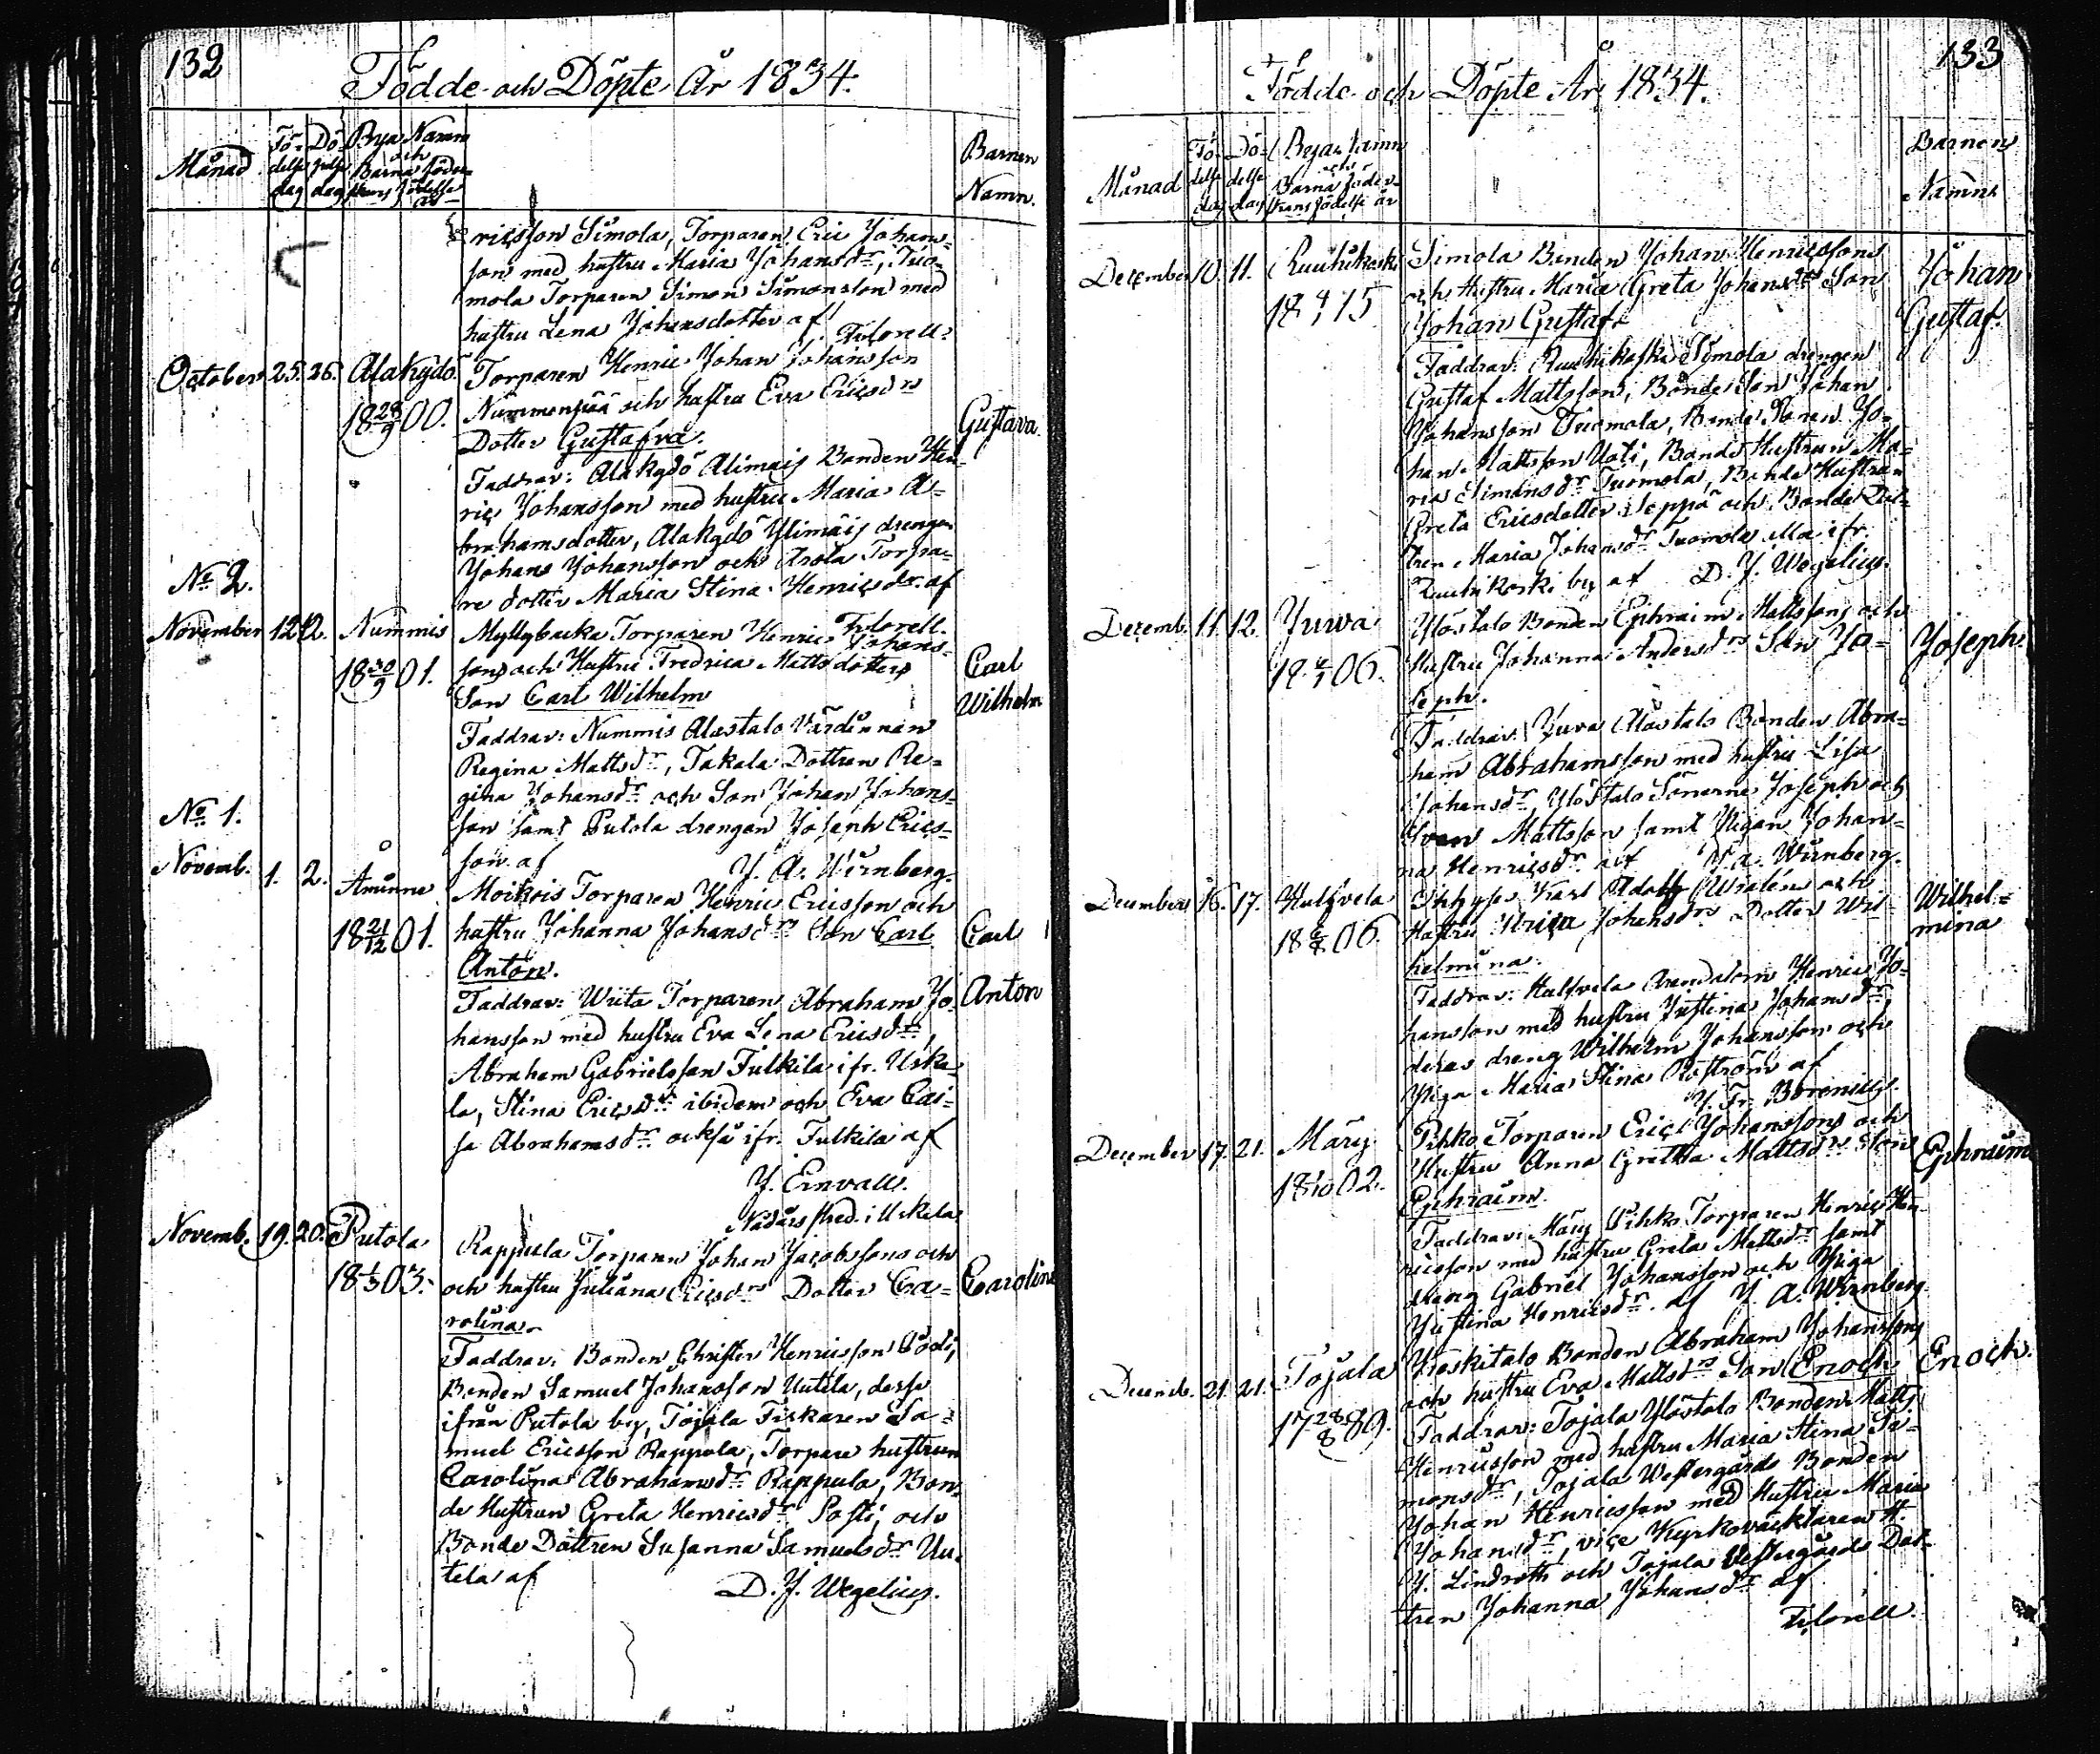 132
Födde och Döpte År 1834.
Månad
Fö-
delse
dag
Dö-
pelse
dag
Bya Namn
och
Barna föder-
skans födelse
år
Barnen
Namn.
ricsson Simola, Torparen Eric Johans-
son med hustru Maria Johansdr, Tuo-
mola Torparen Simon Simonsson med
hustru Lena Johansdotter af
Fidorell.
October 25. 26. Alakydö Torparen Henric Johan Johansson
18 28/9 00. Nummenpää och hustru Eva Ericsdrs
Dotter Gustafva. Gustava.
Faddrar: Alakydö Alimais Bonden Hen-
ric Johansson med hustru Maria A-
brahamsdotter, Alakydö Ylimäis drengen
Johans Johansson och Arola Torpa-
re dotter Maria Stina Henricsdr. af
Fidorell.
No 2.
November 12. 12. Nummis Myllybacka Torparen Henric Johans-
18 30/9 01. sons och Hustru Fredrica Mattsdotters
Son Carl Wilhelm Carl Wilhelm
Faddrar: Nummis Alastalo Värdinnan
Regina Mattsdr, Takala Dottren Re-
gina Johansdr och Son Johan Johans-
son samt Putola drengen Joseph Erics-
son af J. A. Wirnberg.
No 1.
Novemb. 1. 2. Åminne Moikois Torparen Henric Ericsson och
18 21/12 01. hustru Johanna Johansdrs Son Carl
Anton. Carl Anton
Faddrar: Wuta Torparen Abraham Jo-
hansson med hustru Eva Lena Ericsdr,
Abraham Gabrielsson Tulkila ifr. Uske-
la, Stina Ericsdr ibidem och Eva Cai-
sa Abrahamsdr också ifr. Tulkila af
J. Ernvall.
Nådårs Pred. i Uskela
Novemb. 19. 20. Putola Rappula Torparen Johan Jacobssons och
18 1/3 03. och hustru Juliana Ericsdrs Dotter Ca-
rolina. Carolina
Faddrar: Bonden Christer Henricsson Södi,
Bonden Samuel Johansson Uutela, desse
ifrån Putola by, Tojala Fiskaren Sa-
muel Ericsson Rappula, Torpare hustrun
Carolina Abrahamsdr Rappula, Bon-
de Hustrun Greta Henricsdr Posti, och
Bonde Dottren Susanna Samuelsdr Uu-
tela af
D. J. Wegelius.
133
Födde och Döpte År 1834.
Månad
Fö-
delse
dag
Dö-
delse
dag
Byas Namn
och
Barna föder-
skans födelse år
Barnens
Namn.
December 10. 11. Ruuhikoski Simola Bonden Johan Henricssons
och Hustru Maria Greta Johansdrs Son
Johan Gustaf. Johan Gustaf.
Faddrar: Ruuhikoski Simola drengen
Gustaf Mattsson, Bonde Son Johan
Johansson Tuomola, Bonde Sonen Jo-
han Mattsson Uoti, Bonde Hustrun Ma-
ria Simonsdr Tuomola, Bonde Hustrun
Greta Ericsdotter Seppä och Bonde Dot-
tren Maria Johansdr Tuomola alla ifr.
Ruuhikoski by af D. J. Wegelius.
Decemb. 11. 12. Yuva Ylöstalo Bonden Ephraim Mattssons och
Hustru Johanna Andersdrs Son Jo-
seph. Joseph.
Faddrar: Yuva Alastalo Bonden Abra-
ham Abrahamsson med hustru Lisa
Johansdr, Ylöstalo Sönerne Joseph och
Ivan Mattsson samt Pigan Johan-
na Henricsdr af J. A. Wirnberg.
December 16. 17. Halfvela Karl Adolf och
Hustru Johansdrs Dotter Wil-
helmina. Wilhel-
mina
Faddrar: Halfvela Henric Jo-
hansson med hustru Justina Johansdr
deras dreng Wilhelm Johansson och
Piga Maria Stina Roström af
J. Fr. Borenius.
December 17. 21. Märy Pihko Torparen Eric Johanssons och
18 1/10 02. Hustru Anna Gretha Mattsdrs Son
Ephraim. Ephraim
Faddrar: Märy Pihko Torparen Henric Hen-
ricsson med hustru Greta Mattsdr samt
dreng Gabriel Johansson och Piga
Justina Henricsdr. af J. A. Wirnberg
Decemb. 21. 21. Tojala Bonden Abraham Johanssons
17 28/8 89. och hustru Eva Mattsdrs Son Enoch Enoch.
Faddrar: Tojala Ylöstalo Bonden Matts
Henricsson med hustru Maria Stina Si-
monsdr, Tojala Westergårds Bonden
Johan Henricsson med Hustru Maria
Johansdr, vice Kyrkoväktaren H.
J. Lindroth och Tojala Vestergårds Dot-
tren Johanna Johansdr af
Fidorell.